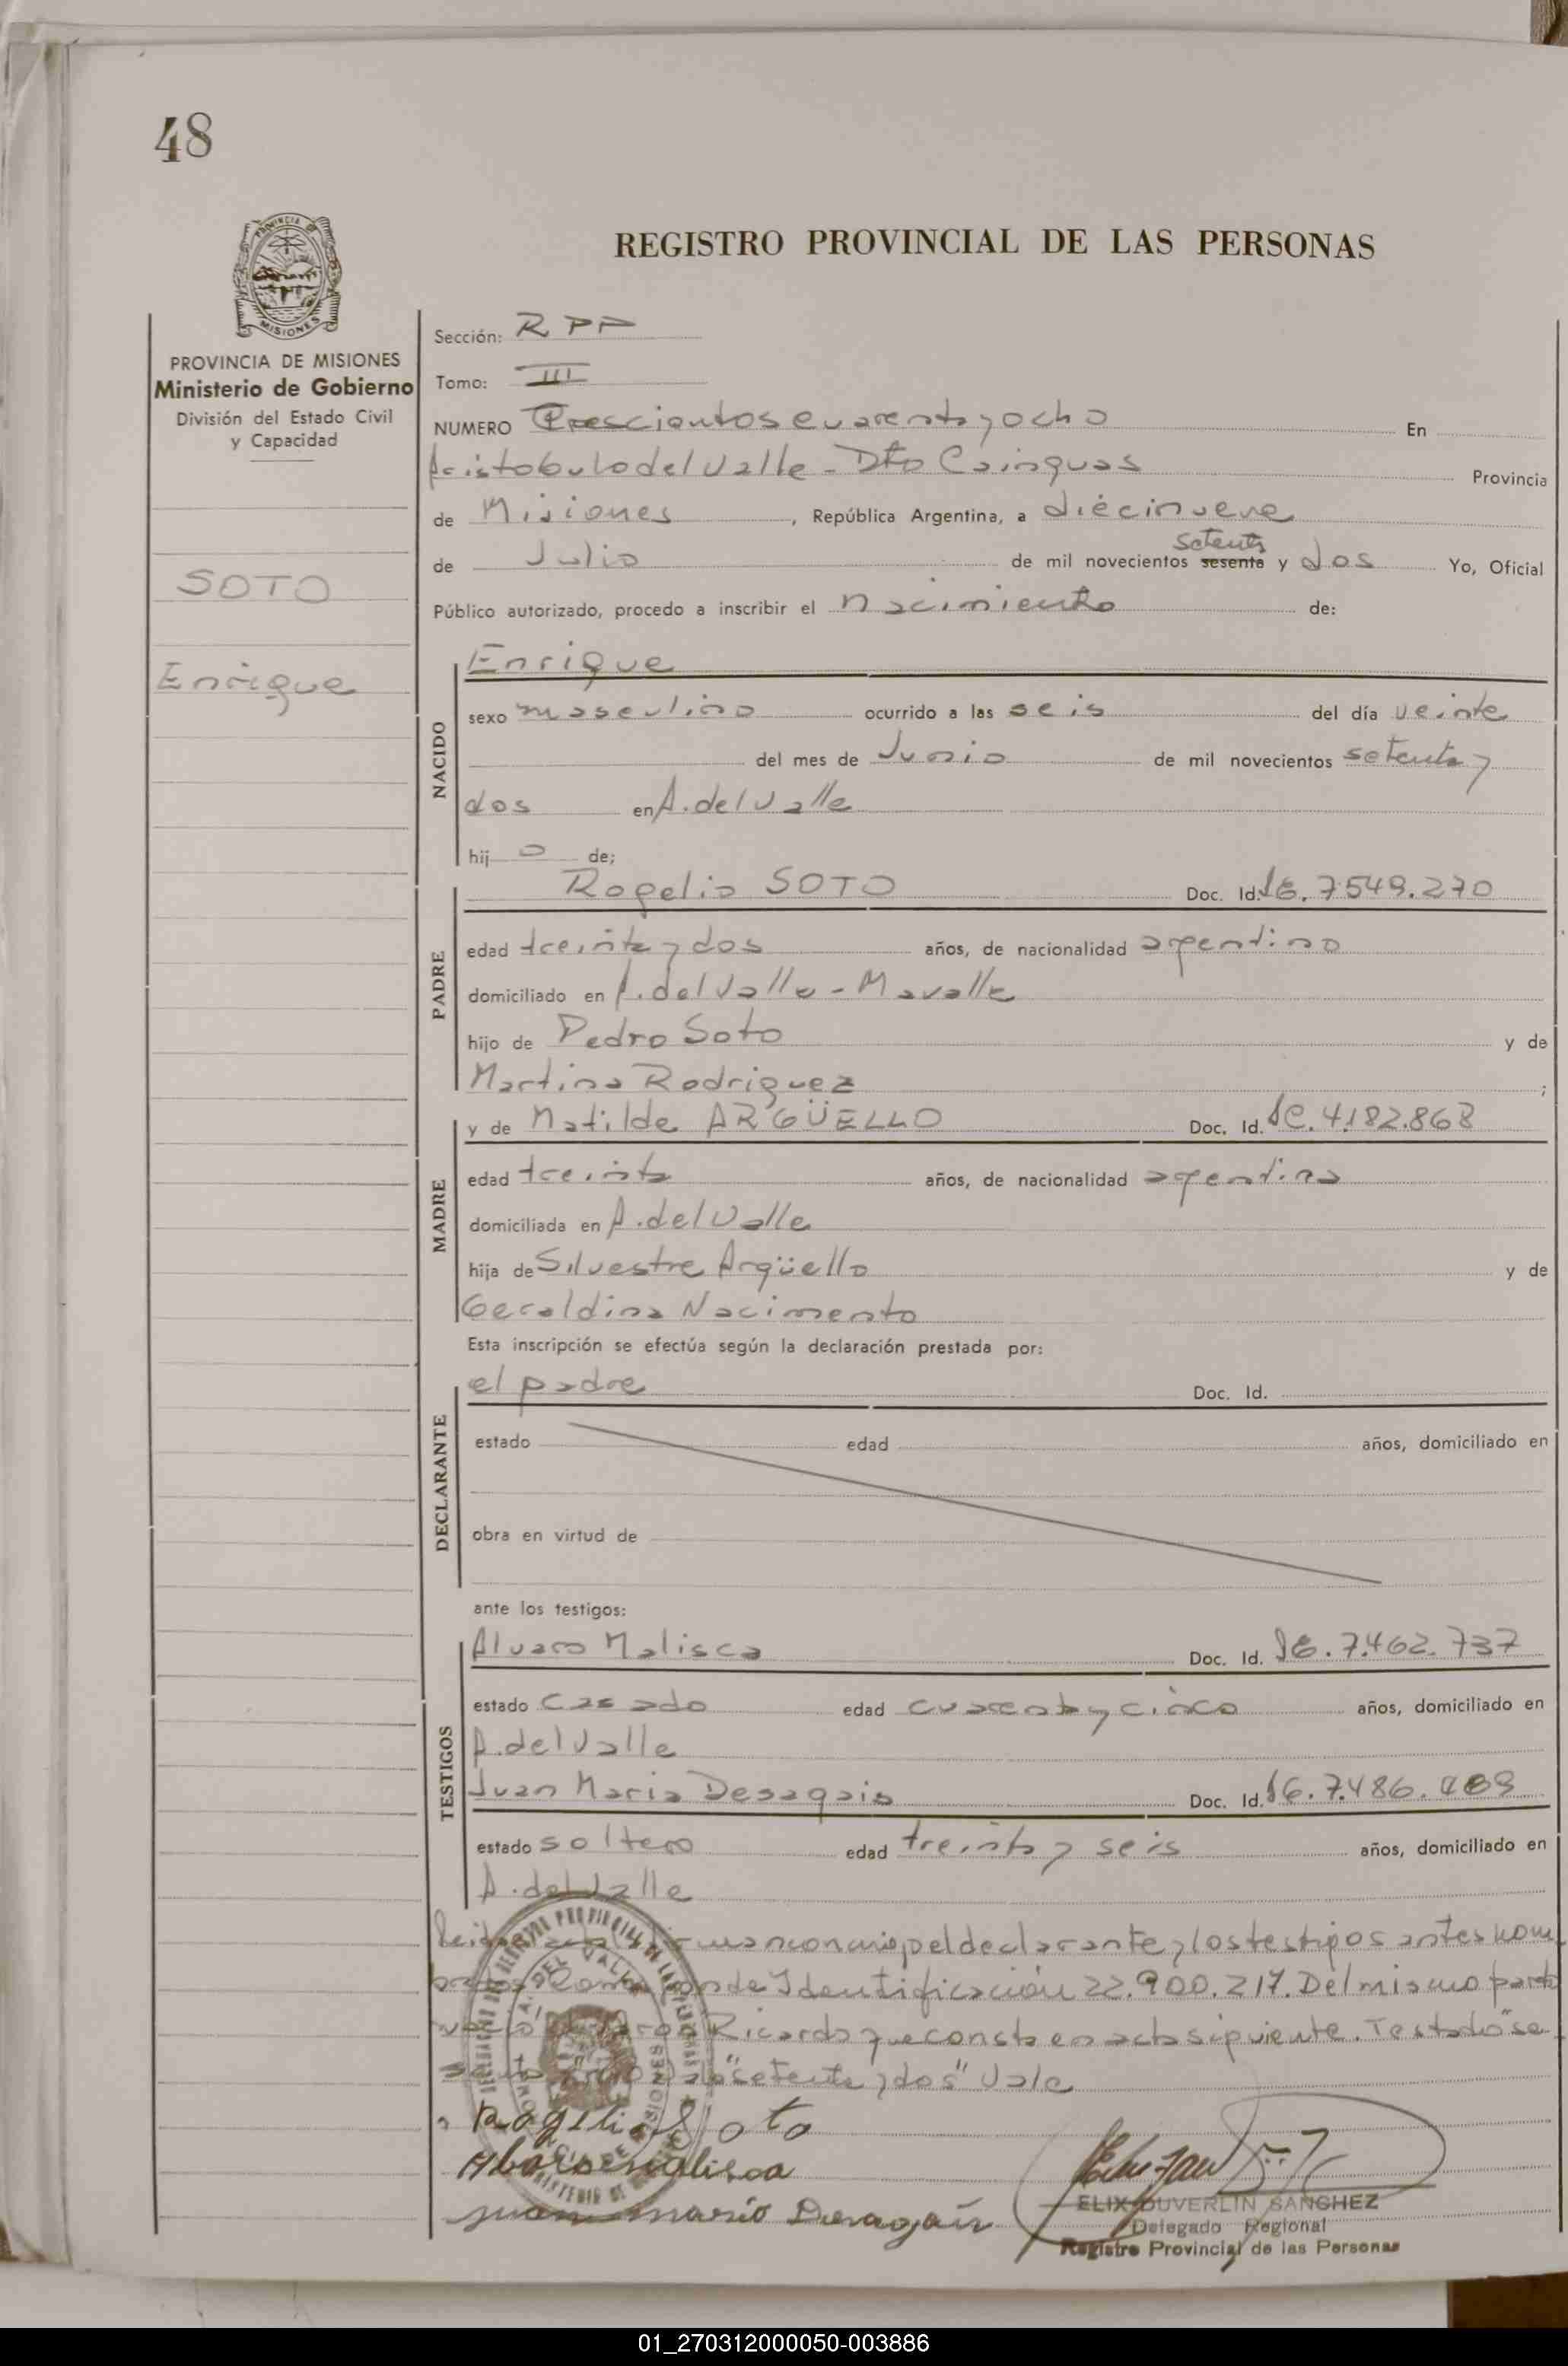 48
PROVINCIA DE MISIONES
Ministerio de Gobierno
División del Estado Civil
y Capacidad
SOTO
Enrique
REGISTRO PROVINCIAL DE LAS PERSONAS
Sección: RPP
Tomo: III
NUMERO Trescientos cuarenta y ocho En
Aristobulo del Valle - Dto Cainguas Provincia
de Misiones, República Argentina, a diecinueve
setenta
de Julio de mil novecientos sesenta y dos Yo, Oficial
Público autorizado, procedo a inscribir el nacimiento de:
NACIDO
Enrique
sexo masculino ocurrido a las seis del día veinte
del mes de Junio de mil novecientos setenta y
dos en A. del Valle
hij o de;
PADRE
Rogelio SOTO Doc. Id. 7.549.270
edad treinta y dos años, de nacionalidad argentino
domiciliado en A. del Valle - Mavalle
hijo de Pedro Soto y de
Martina Rodriguez ;
MADRE
y de Matilde ARGÜELLO Doc. Id. 4.182.868
edad treinta años, de nacionalidad argentina
domiciliada en A. del Valle
hija de Silvestre Argüello y de
Geraldina Nacimento
Esta inscripción se efectúa según la declaración prestada por:
DECLARANTE
el padre Doc. Id.
estado edad años, domiciliado en
obra en virtud de
ante los testigos:
TESTIGOS
Alvaro Malisca Doc. Id. 7.462.737
estado casado edad cuarenta y cinco años, domiciliado en
A. del Valle
Juan Maria Desagais Doc. Id. 7.486.
estado soltero edad treinta y seis años, domiciliado en
A. del Valle
Leida el acta firman conmigo el declarante y los testigos antes nom
brados. de Identificación 22.900.217. Del mismo parto
Ricardo que consta en acta siguiente. Testado "se
"setenta y dos" Vale
Rogelio Soto
Alvaro malisca
juan mario Desagais
ELIX DUVERLIN SANCHEZ
Delegado Regional
Registro Provincial de las Personas
01_270312000050-003886